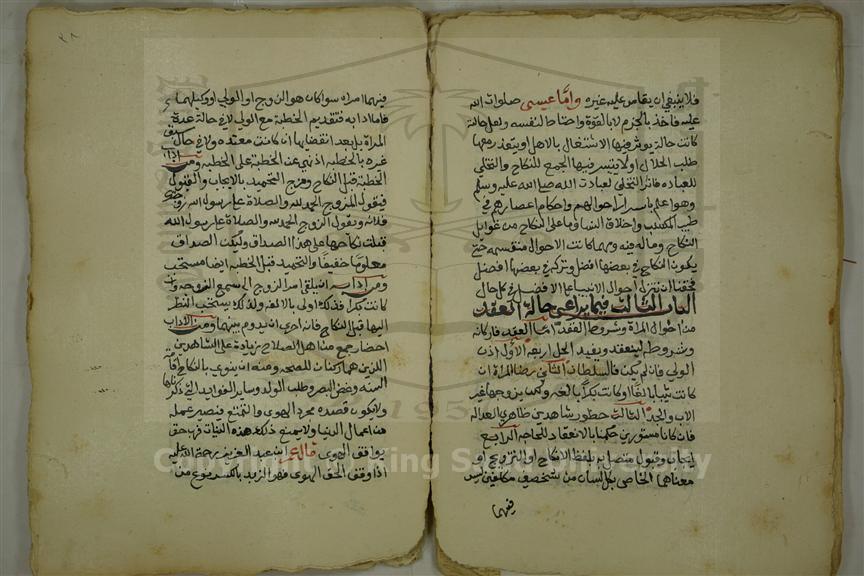 فلا ينبغي ان يقاس عليه غيره واما عيسى صلوات الله
عليه فاخذ بالحزم لا بالقوة واحتاط لنفسه ولعل حالة
كانت حالة يوثر فيها الاشتغال بالاهل او يتعذر معها
طلب الحلال او لا يتيسر فيها الجمع للنكاح والتخلي
للعباده فاثر التخلي لعبادت الله صلى الله عليه وسلم
وهو اعلم باسرار احوالهم واحكام اعصارهم في
طيب المكسب واخلاق النسا وما على النكاح من غوائل
النكاح وماله فيه ومهما كانت الاحوال منقسمه حتى
يكون النكاح في بعضها افضل وتركه في بعضها افضل
فحقنا ان ننزل احوال الانبيا على الافضل في كل حال
الباب الثالث فيما يراعى حالة العقد
من احوال المراة وشروط العقد اما العقد فاركانه
وشروطه لينعقد ويفيد الحل اربعة الاول اذن
الولي فان لم يكن فالسلطان الثاني رضا المراة ان
كانت ثيبا بالغا او كانت بكرا بالغه ولكن يزوجها غير
الاب والجد الثالث حضور شاهدين ظاهري العدالة
فان كانا مستورين حكمنا بالانعقاد للحاجه الرابع
ايجاب وقبول متصل به بلفظ الانكاح او التزويج او
معناهما الخاص بكل لسان من شخصين مكلفين ليس
فيهما
٣٨
فيهما امراه سوا كان هو الزوج او الولي او وكيلهما
فاما ادابه فتقديم الخطبة مع الولي لا في حالة عدة
المراة بل بعد انقضايها ان كانت معتده ولا في حال سبق
غيره بالخطبه اذ نهي عن الخطبة على الخطبه ومن ادابه
الخطبة قبل النكاح ومزج التحميد بالايجاب والقبول
فيقول المزوج الحمد لله والصلاة على رسول الله زوجتك
فلانه ويقول الزوج الحمد لله والصلاة على رسول الله
قبلت نكاحها على هذا الصداق وليكن الصداق
معلوما خفيفا والتحميد قبل الخطبه ايضا مستحب
ومن ادابه ان يلقي امر الزوج الى سمع الزوجه وان
كانت بكرا فذلك اولى بالالفه ولذلك يستحب النظر
اليها قبل النكاح فانه احرى ان يدوم بينهما ومن الاداب
احضار جمع من اهل الصلاح زيادة على الشاهدين
اللذين هما ركنان للصحه ومنه ان ينوي بالنكاح اقامة
السنه وغض البصر وطلب الولد وساير الفوايد التي ذكرناها
ولا يكون قصده مجرد الهوى والتمتع فيصير عمله
من اعمال الدنيا ولا يمنع ذلك هذه النيات فرب حق
يوافق الهوى قال عمر ابن عبد العزيز رحمة الله عليه
اذا وافق الحق الهوى فهو الزبد بالكسر يوع من
Copyright © King Saud University